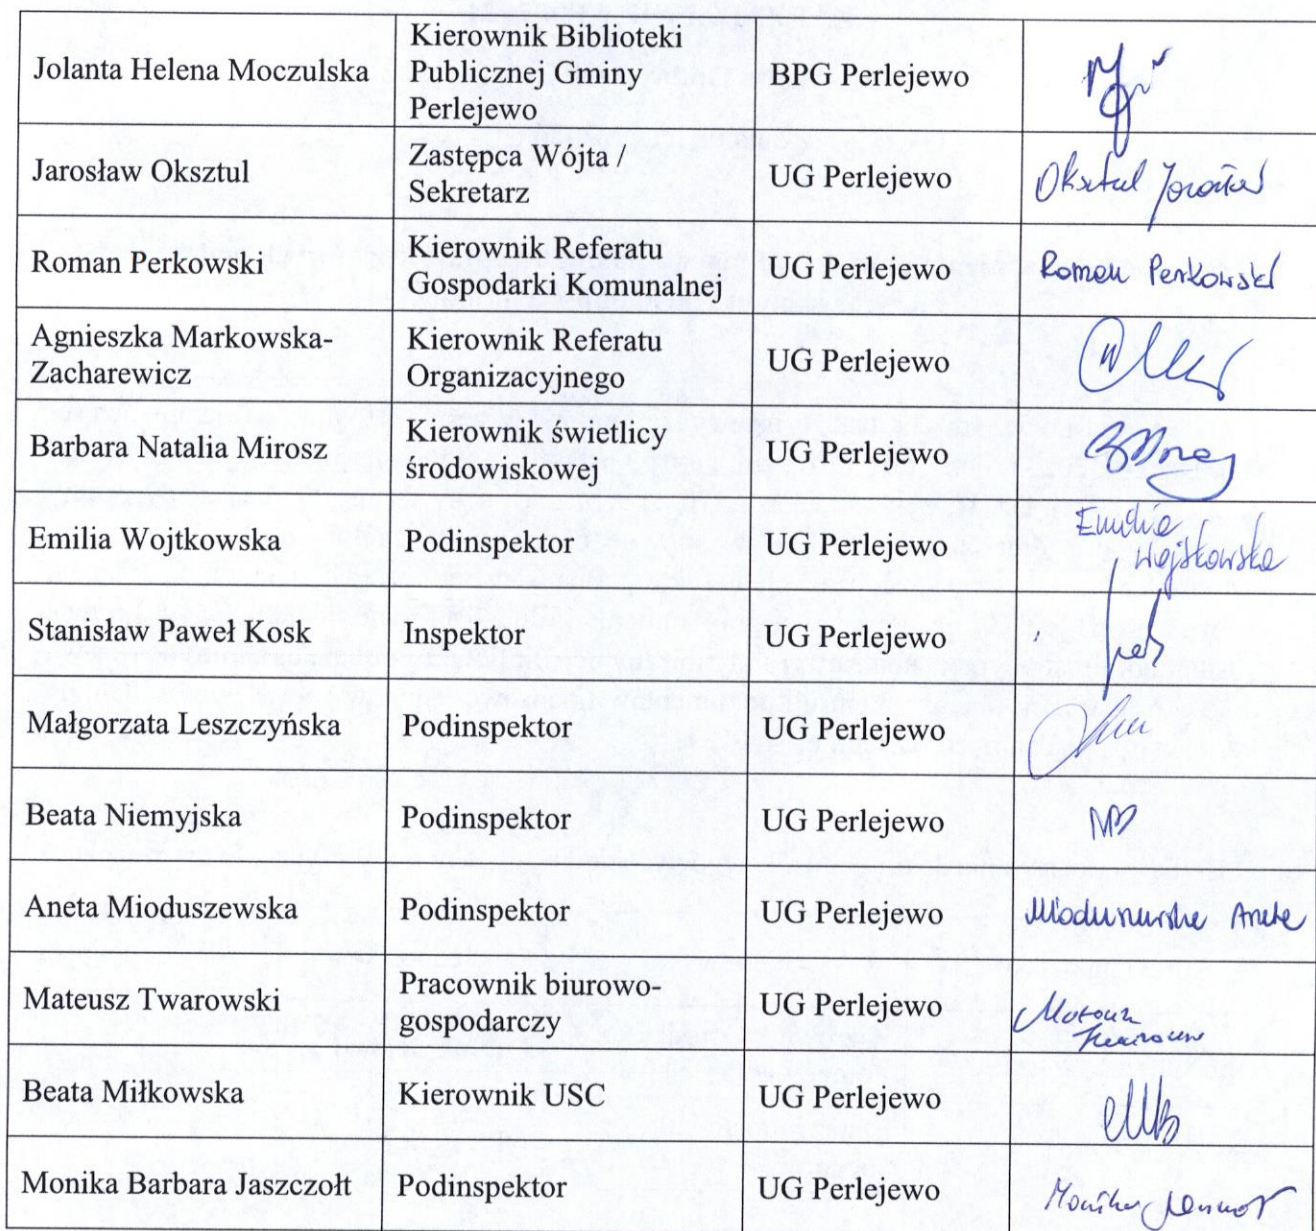 Jolanta Helena Moczulska
Kierownik Biblioteki
Publicznej Gminy
Perlejewo
BPG Perlejewo
Jarosław Oksztul
Zastępca Wójta /
Sekretarz
UG Perlejewo
Oksztul Jarosław
Roman Perkowski
Kierownik Referatu
Gospodarki Komunalnej
UG Perlejewo
Roman Perkowski
Agnieszka Markowska-
Zacharewicz
Kierownik Referatu
Organizacyjnego
UG Perlejewo
Barbara Natalia Mirosz
Kierownik świetlicy
środowiskowej
UG Perlejewo
Emilia Wojtkowska
Podinspektor
UG Perlejewo
Emilia
Wojtkowska
Stanisław Paweł Kosk
Inspektor
UG Perlejewo
Małgorzata Leszczyńska
Podinspektor
UG Perlejewo
Beata Niemyjska
Podinspektor
UG Perlejewo
NB
Aneta Mioduszewska
Podinspektor
UG Perlejewo
Mioduszewska Aneta
Mateusz Twarowski
Pracownik biurowo-
gospodarczy
UG Perlejewo
Mateusz
Twarowski
Beata Miłkowska
Kierownik USC
UG Perlejewo
Monika Barbara Jaszczołt
Podinspektor
UG Perlejewo
Monika Jaszczołt